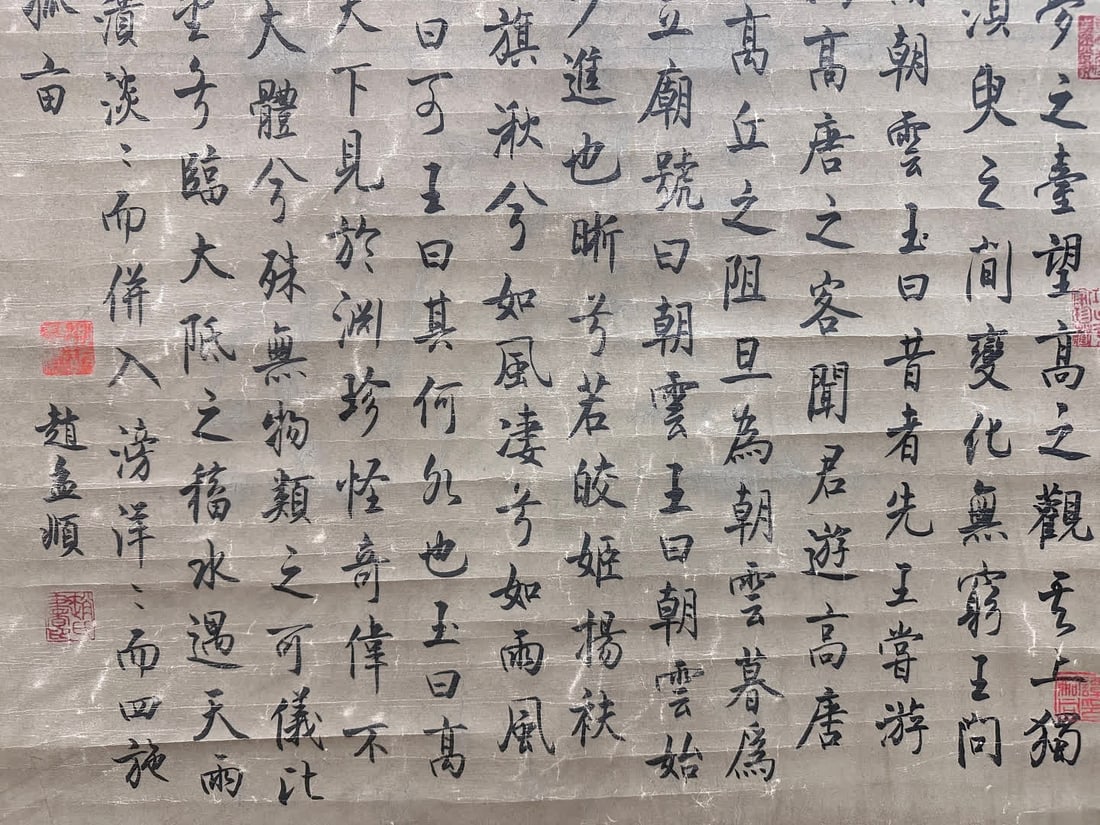 夢之臺望高之觀其上獨
須臾之間變化無窮王問
朝雲玉曰昔者先王嘗游
高唐之客聞君遊高唐
高丘之阻旦為朝雲暮為
立廟號曰朝雲王曰朝雲始
進也晰兮若姣姬揚袂
旗湫兮如風淒兮如雨風
曰可王曰其何如也玉曰高
天下見於淵珍怪奇偉不
大體兮殊無物類之可儀比
兮臨大阺之稸水遇天雨
濆淡〻而併入滂洋〻而四施
畝
趙孟頫